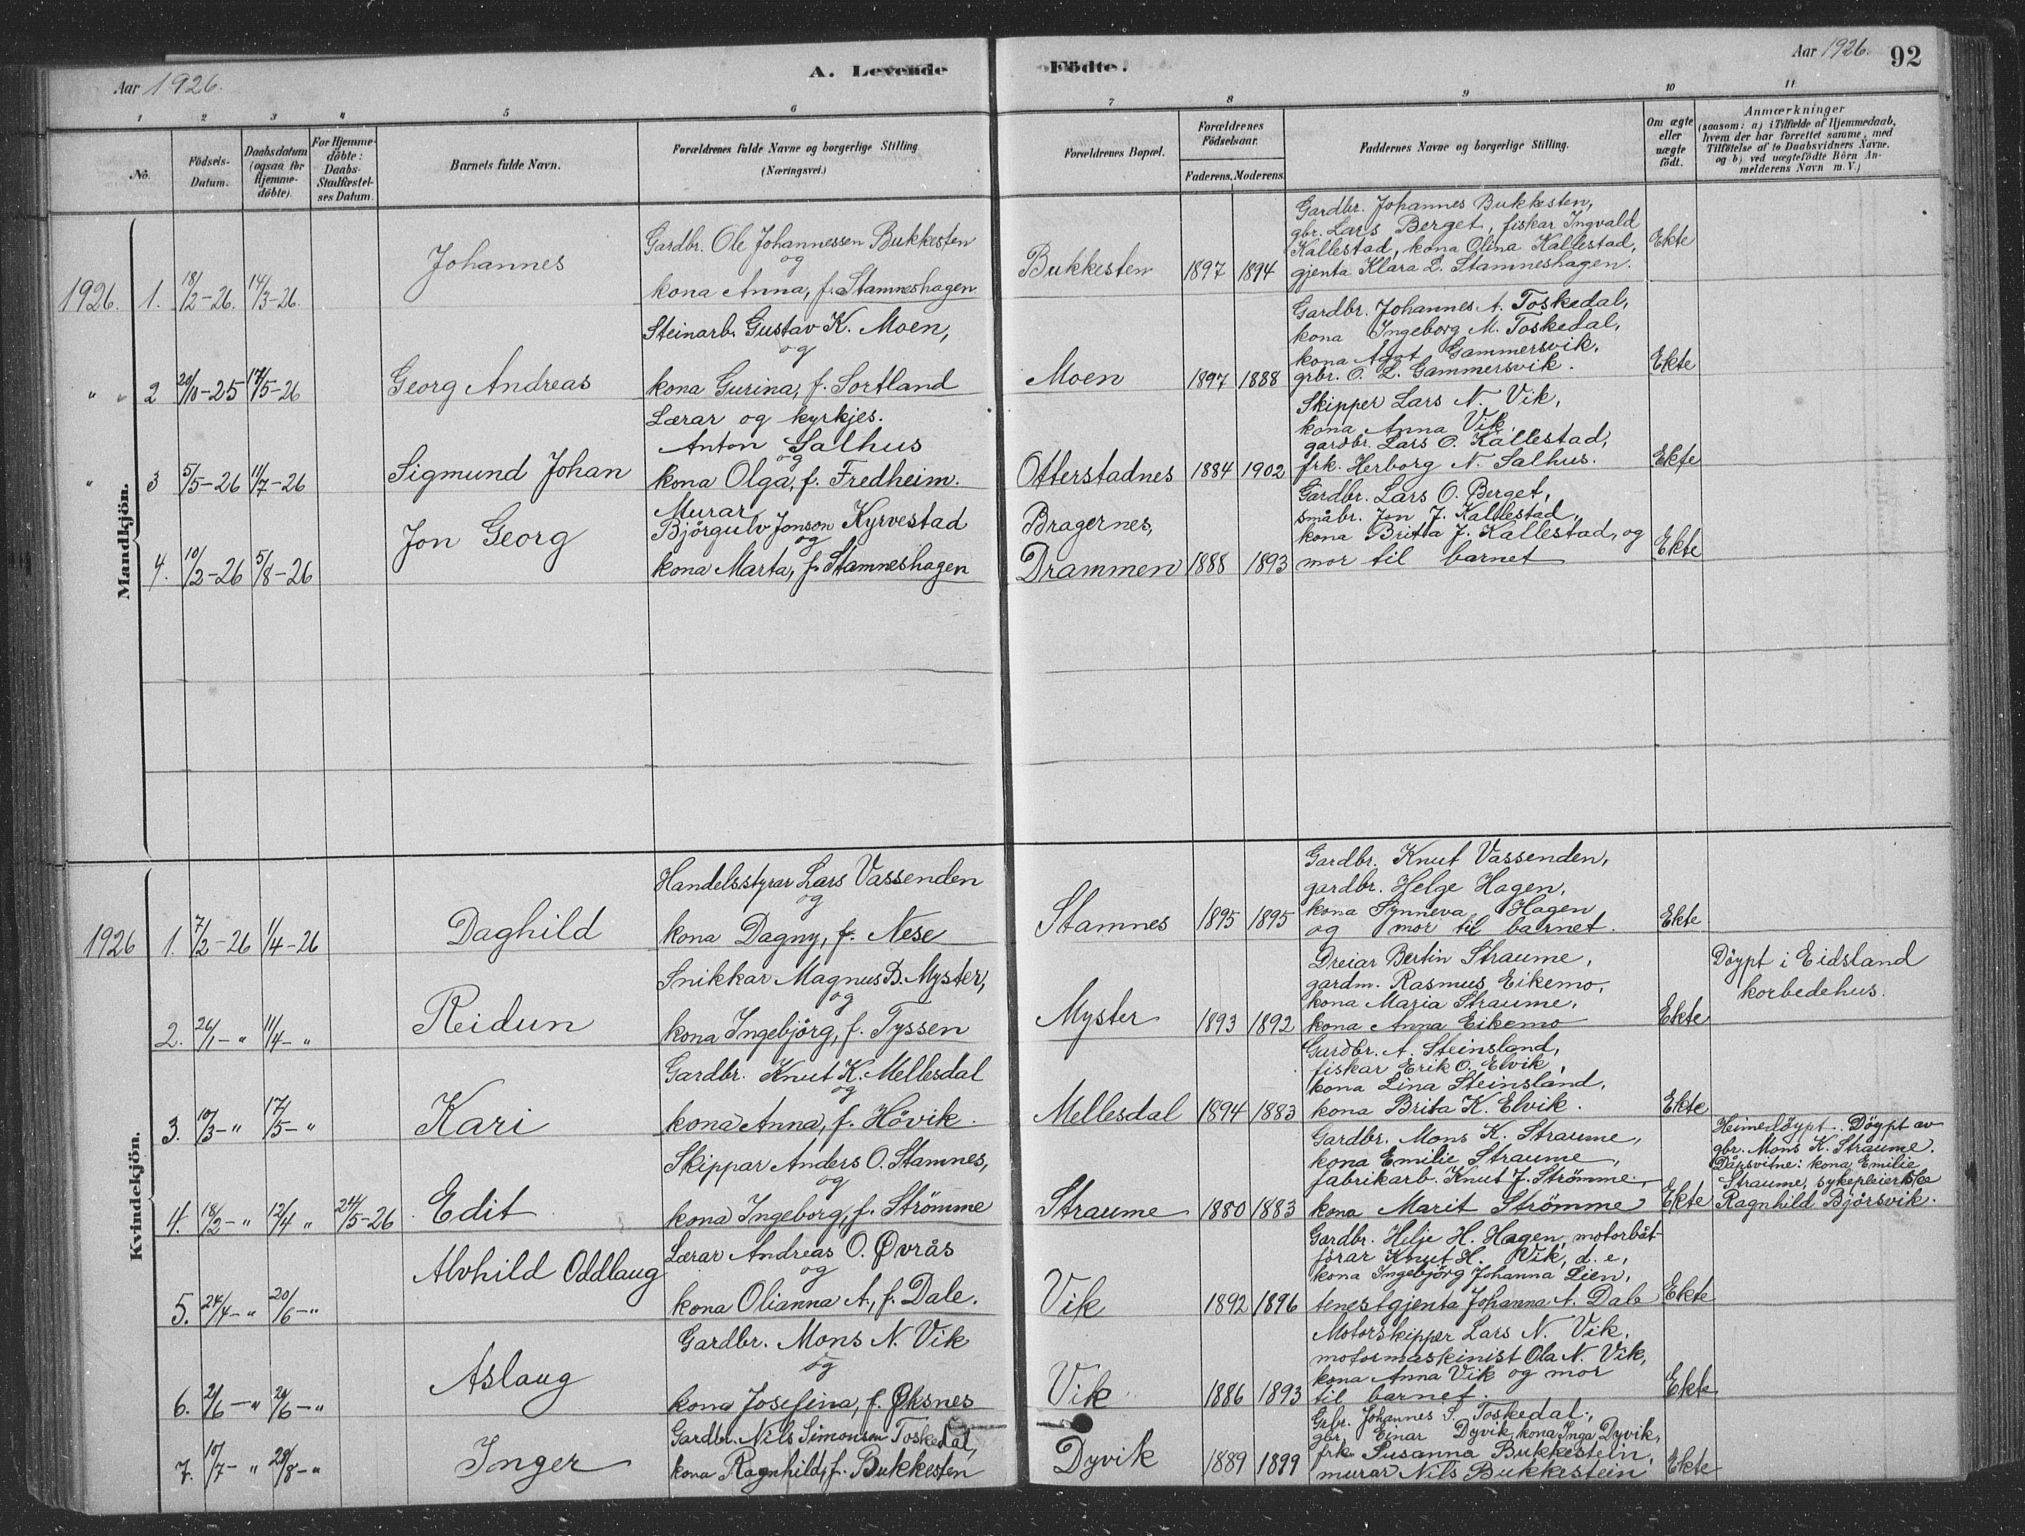 Aar 1926.
A. Levende
Födte.
Aar 1926.
92
1 2 3 4 5 6 7 8 9 10 11
No.
Födsels-
Datum.
Daabsdatum
(ogsaa för
Hjemme-
döbte).
For Hjemme-
döbte:
Daabs-
Stadfæstel-
ses Datum.
Barnets fulde Navn.
Forældrenes fulde Navne og borgerlige Stilling
(Næringsvei.)
Forældrenes Bopæl.
Forældrenes
Födselsaar.
Faderens. Moderens.
Faddernes Navne og borgerlige Stilling.
Om ægte
eller
uægte
födt.
Anmærkninger
(saasom: a) i Tilfælde af Hjemmedaab,
hvem der har forrettet samme, med
Tilföielse af to Daabsvidners Navne.
og b) ved uægtefödte Börn An-
melderens Navn m. V.)
Mandkjön.
1926. 1. 18/2-26. 14/3-26.
Johannes
Gardbr. Ole Johannessen Bukkesten
og
kona Anna, f. Stamneshagen
Bukkesten 1897 1894
Gardbr. Johannes Bukkesten,
gbr. Lars Berget, fiskar Ingvald
Kallestad, kona Olina Kallestad,
gjenta Klara L. Stamneshagen.
Ekte
" " 2 29/10-25 17/5-26
Georg Andreas
Steinarb. Gustav K. Moen,
og
kona Gurina, f. Sortland
Moen 1897 1888
Gardbr. Johannes A. Toskedal,
kona Ingeborg M. Toskedal,
kona Agot Gammersvik,
grbr. O. L. Gammersvik.
Ekte
" 3 5/5-26 11/7-26
Sigmund Johan
Lærar og kyrkjes.
Anton Salhus
og
kona Olga, f. Fredheim.
Otterstadnes 1884 1902
Skipper Lars N. Vik,
kona Anna Vik,
gardbr. Lars O. Kallestad,
frk. Herborg N. Salhus.
Ekte
4. 10/2-26 5/8-26
Jon Georg
Murar
Björgulv Jonson Kyrvestad
og
kona Marta, f. Stamneshagen
Bragernes,
Drammen 1888 1893
Gardbr. Lars O. Berget,
småbr. Jon J. Kallestad,
kona Brita J. Kallestad, og
mor til barnet
Ekte
Kvindekjön.
1926 1. 7/2-26 1/4-26
Daghild
Handelsstyrar Lars Vassenden
og
kona Dagny, f. Nese
Stamnes 1895 1895
Gardbr. Knut Vassenden,
gardbr. Helge Hagen,
kona Synneva Hagen
og mor til barnet.
Ekte
2. 26/1-" 11/4-"
Reidun
Snikkar Magnus B. Myster,
og
kona Ingebjörg, f. Tyssen
Myster 1893 1892
Dreiar Bertin Straume,
gardm. Rasmus Eikemo,
kona Maria Straume,
kona Anna Eikemo
Ekte
Döypt i Eidsland
korbedehus.
3. 10/3-" 17/5-"
Kari
Gardbr. Knut K. Mellesdal
og
kona Anna, f. Hövik.
Mellesdal 1894 1883
Gardbr. A. Steinsland,
fiskar Erik O. Elvik,
kona Lina Steinsland,
kona Brita K. Elvik.
Ekte
4. 18/2-" 12/4 " 24/5-26
Edit
Skippar Anders O. Stamnes,
og
kona Ingeborg, f. Strömme
Straume 1880 1883
Gardbr. Mons K. Straume,
kona Emilie Straume,
fabrikarb. Knut J. Strömme,
kona Marit Strömme
Ekte
Heimedöypt. Döypt av
gbr. Mons K. Straume.
Dåpsvitne: kona Emilie
Straume, sykepleierska
Ragnhild Björsvik.
5. 24/4-" 20/6-"
Alvhild Oddlaug
Lærar Andreas O. Øvrås
og
kona Olianna A., f. Dale.
Vik 1892 1896
Gardbr. Helje H. Hagen, motorbåt-
förar Knut H. Vik, d. e,
kona Ingebjörg Johanna Lien,
tenestgjenta Johanna A. Dale
Ekte
6. 2/6-" 20/6-"
Aslaug
Gardbr. Mons N. Vik
og
kona Josefina, f. Øksnes
Vik 1886 1893
Motorskipper Lars N. Vik,
motormaskinist Ola N. Vik,
kona Anna Vik og mor
til barnet.
Ekte
7. 10/7-" 29/8-"
Inger
Gardbr. Nils Simonsen Toskedal,
kona Ragnhild, f. Bukkesten
Dyvik 1889 1899
Grbr. Johannes S. Toskedal,
gbr. Einar Dyvik, kona Inga Dyvik,
frk Susanna Bukkestein,
murar Nils Bukkestein
Ekte